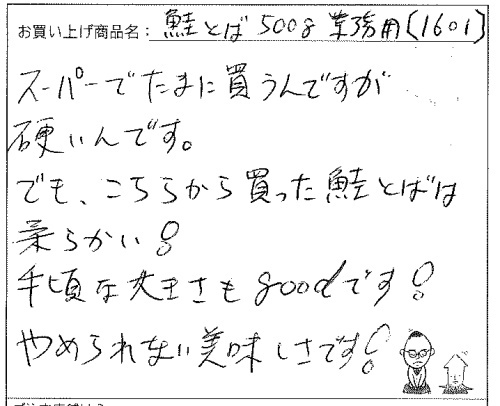 お買い上げ商品名: 鮭とば 500g 業務用(1601)
スーパーでたまに買うんですが
硬いんです。
でも、こちらから買った鮭とばは
柔らかい!
手頃な大きさもgoodです!
やめられない美味しさです!